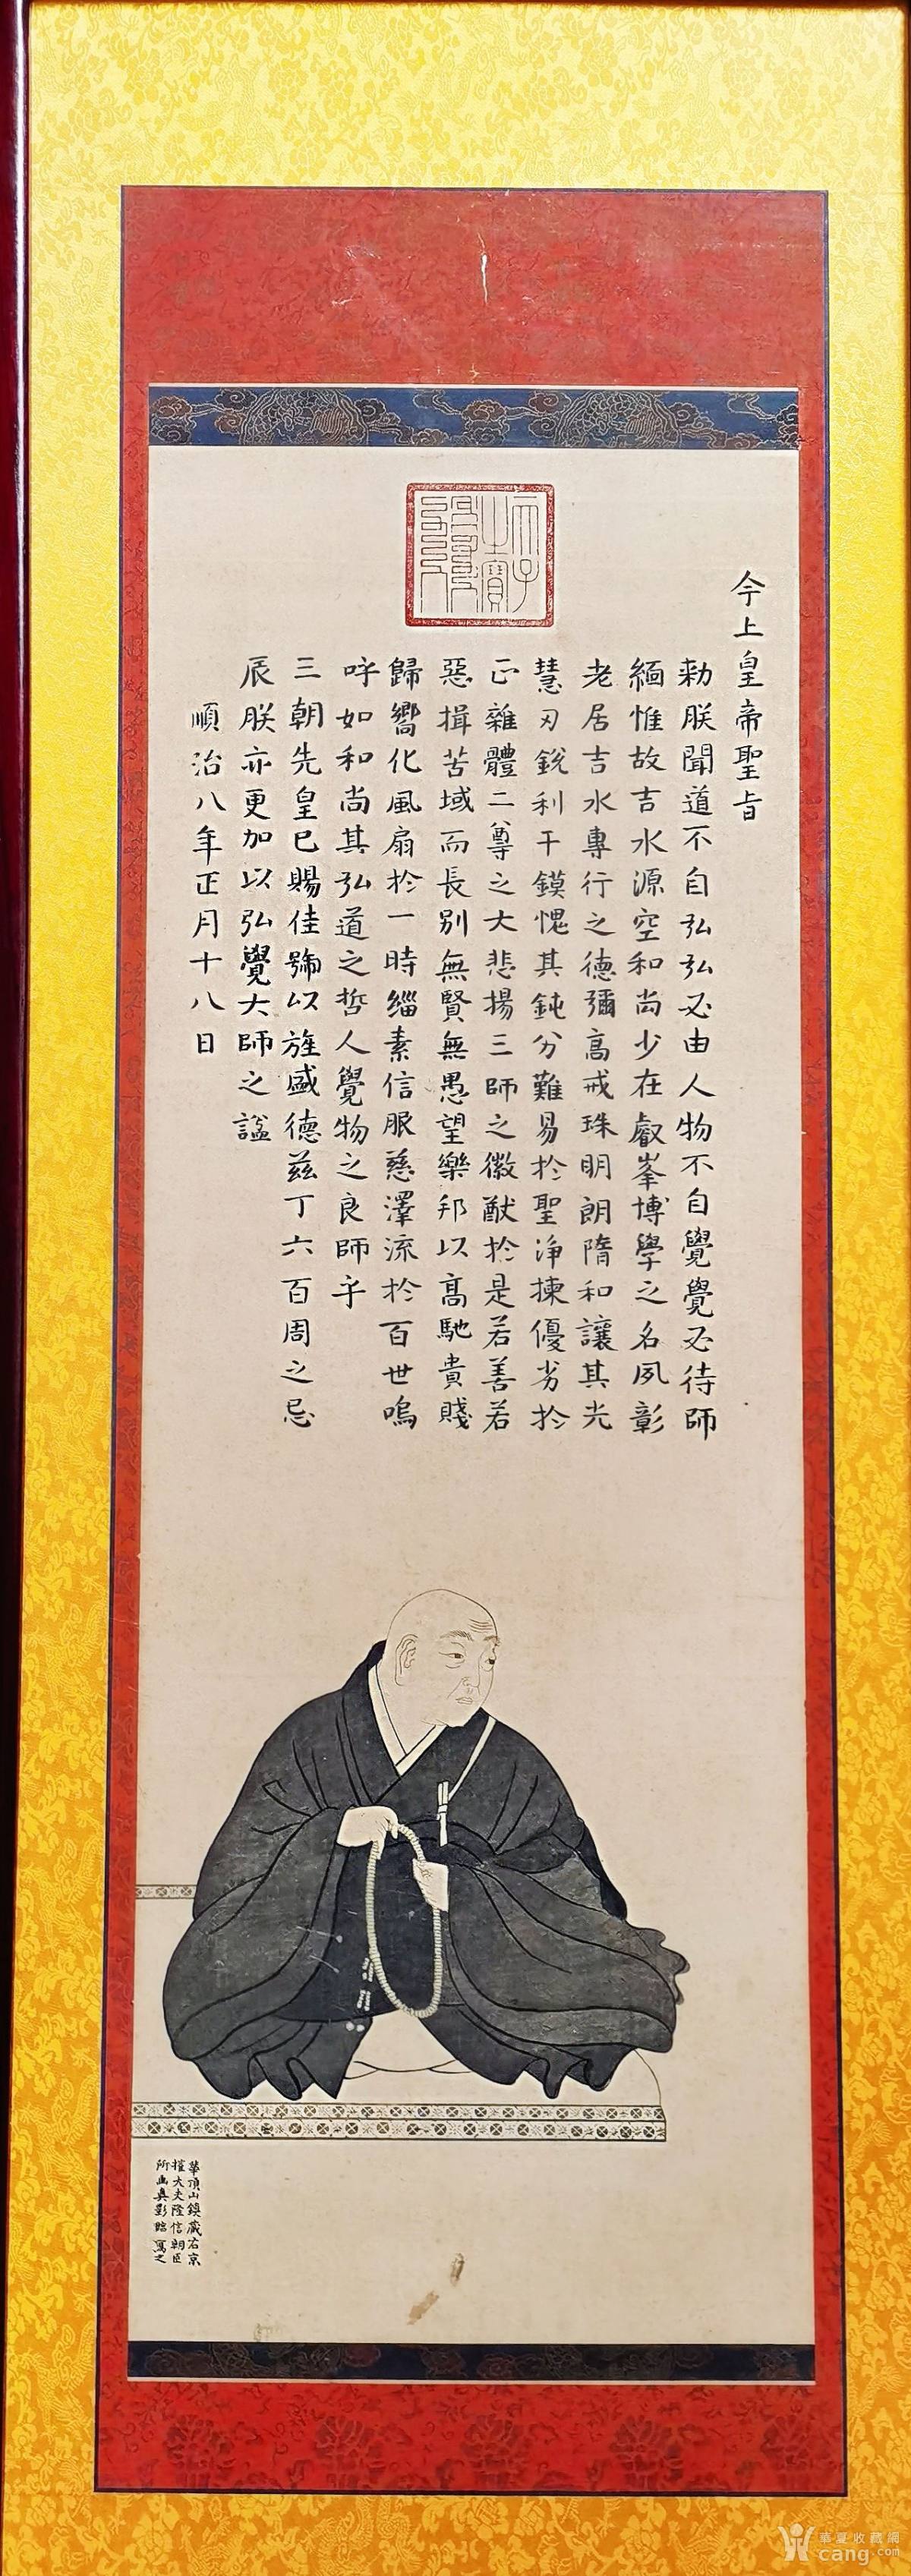 今上皇帝聖旨
勅朕聞道不自弘弘必由人物不自覺覺必待師
緬惟故吉水源空和尚少在叡峯博學之名夙彰
老居吉水專行之德彌高戒珠明朗隋和讓其光
慧刃銳利干鏌愧其鈍分難易於聖淨揀優劣於
正雜體二尊之大悲揚三師之徽猷於是若善若
惡揖苦域而長別無賢無愚望樂邦以高馳貴賤
歸嚮化風扇於一時緇素信服慈澤流於百世嗚
呼如和尚其弘道之哲人覺物之良師乎
三朝先皇已賜佳號以旌盛德茲丁六百周之忌
辰朕亦更加以弘覺大師之謚
順治八年正月十八日
天子
之寶
華頂山鎮藏右京
權大夫隆信朝臣
所畫真影臨寫之
華夏收藏網
cang.com